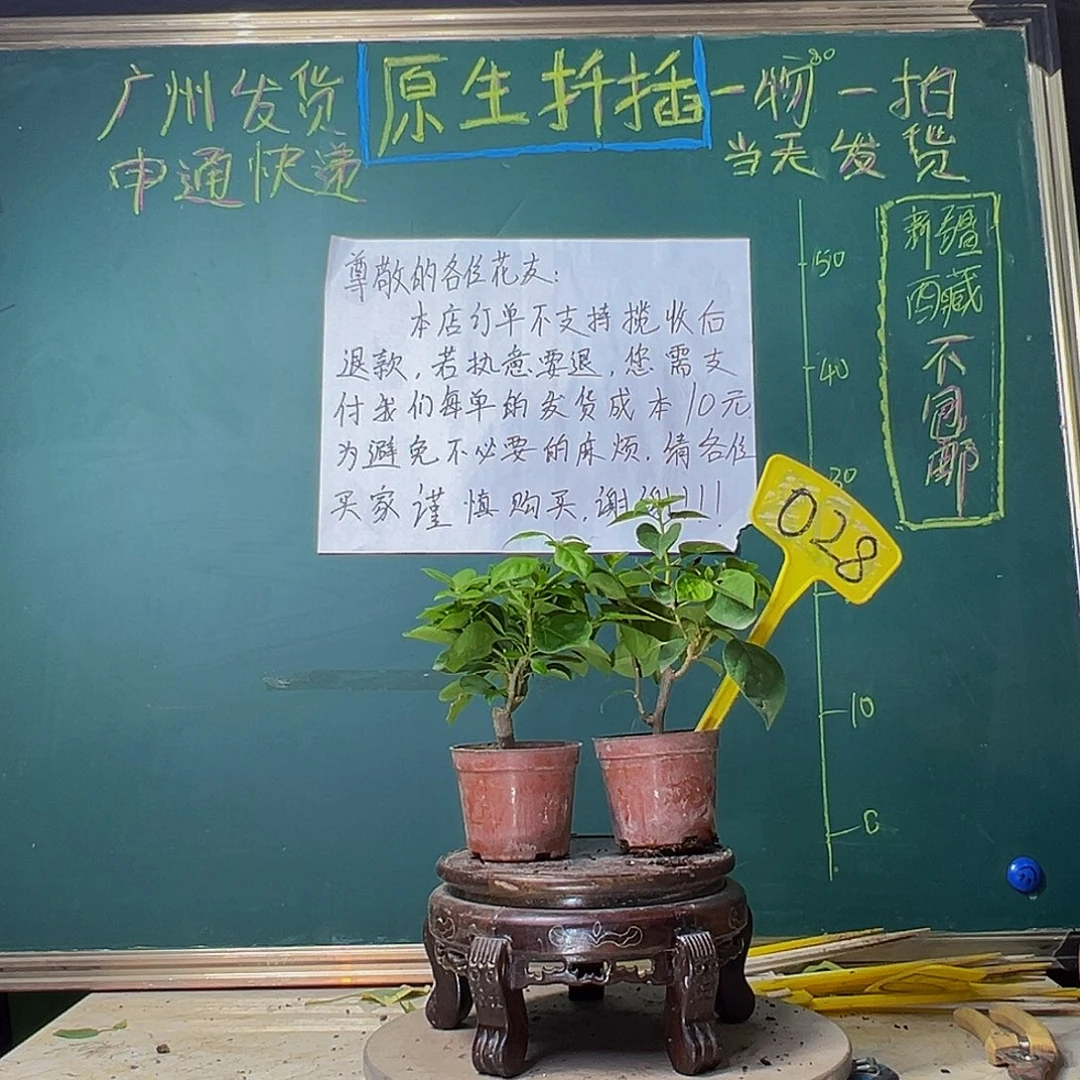 广州发货
申通快递
原生扦插
一物一拍
当天发货
新疆
西藏
不包邮
50
40
30
10
0
尊敬的各位花友:
本店订单不支持揽收后
退款,若执意要退,您需支
付我们每单的发货成本10元
为避免不必要的麻烦.请各位
买家谨慎购买,谢谢!!!
028